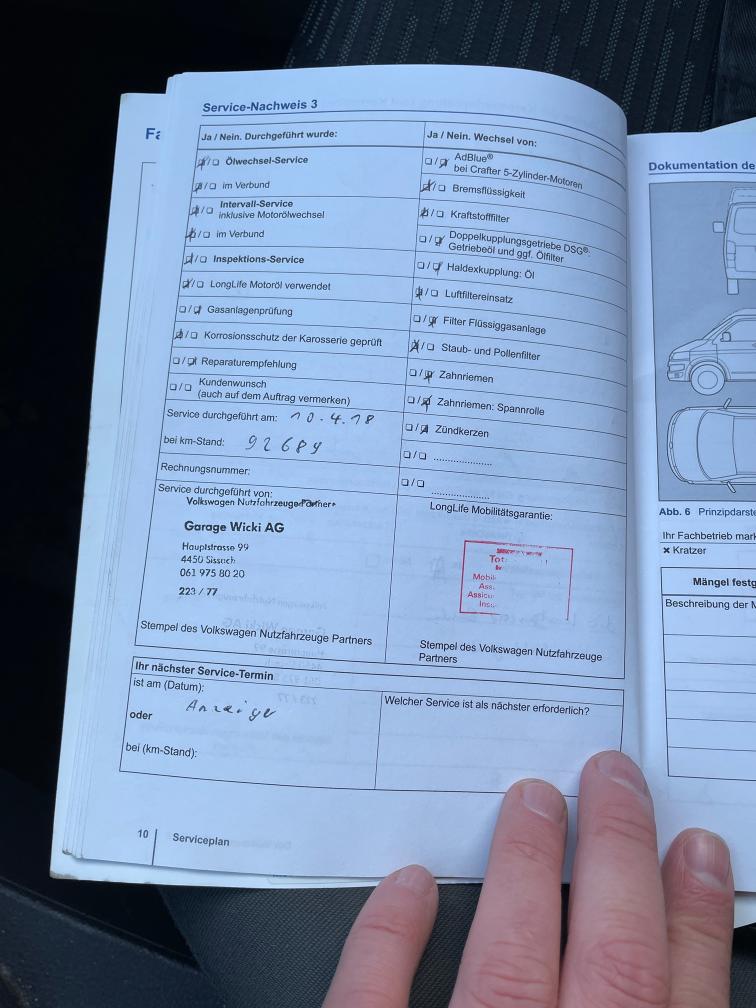 Service-Nachweis 3
Ja / Nein. Durchgeführt wurde:
☒/☐ Ölwechsel-Service
☒/☐ im Verbund
☒/☐ Intervall-Service
inklusive Motorölwechsel
☒/☐ im Verbund
☒/☐ Inspektions-Service
☒/☐ LongLife Motoröl verwendet
☐/☒ Gasanlagenprüfung
☒/☐ Korrosionsschutz der Karosserie geprüft
☐/☒ Reparaturempfehlung
☐/☐ Kundenwunsch
(auch auf dem Auftrag vermerken)
Service durchgeführt am: 10.4.18
bei km-Stand: 92689
Rechnungsnummer:
Service durchgeführt von:
Volkswagen Nutzfahrzeuge Partner
Garage Wicki AG
Hauptstrasse 99
4450 Sissach
061 975 80 20
223 / 77
Stempel des Volkswagen Nutzfahrzeuge Partners
Ja / Nein. Wechsel von:
☐/☒ AdBlue®
bei Crafter 5-Zylinder-Motoren
☒/☐ Bremsflüssigkeit
☒/☐ Kraftstofffilter
☐/☒ Doppelkupplungsgetriebe DSG®:
Getriebeöl und ggf. Ölfilter
☐/☒ Haldexkupplung: Öl
☒/☐ Luftfiltereinsatz
☐/☒ Filter Flüssiggasanlage
☒/☐ Staub- und Pollenfilter
☐/☒ Zahnriemen
☐/☒ Zahnriemen: Spannrolle
☐/☒ Zündkerzen
☐/☐ ....................
☐/☐ ....................
LongLife Mobilitätsgarantie:
Stempel des Volkswagen Nutzfahrzeuge
Partners
Ihr nächster Service-Termin
ist am (Datum):
Anzeige
oder
bei (km-Stand):
Welcher Service ist als nächster erforderlich?
10 Serviceplan
Dokumentation de
Abb. 6 Prinzipdarste
Ihr Fachbetrieb mark
× Kratzer
Mängel festg
Beschreibung der M